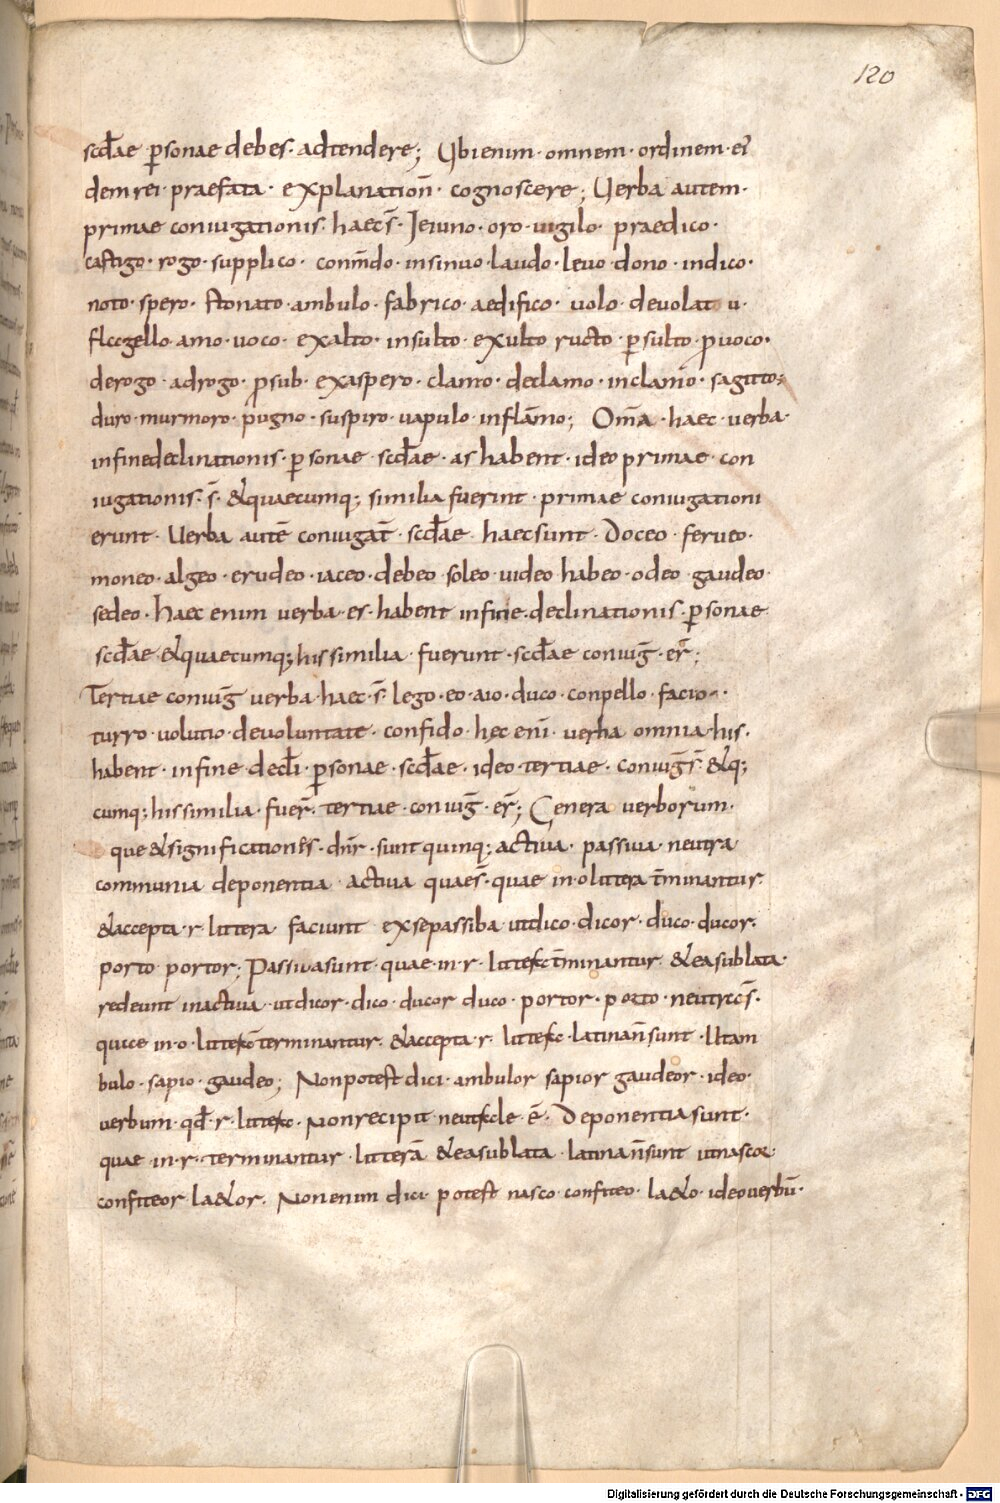 120
scd̄ae ꝑsonae debes· adtendere; Ubienim· omnem· ordinem· ei
dem rei· praefata· explanation̄· cognoscere; Uerba autem·
primae coniugationis· haec s̄· Ieiuno· oro· uigilo· praedico·
castigo· rogo· supplico· com̄do· insinuo· laudo· leuo· dono· indico·
noto· spero· stonato· ambulo· fabrico· aedifico· uolo· deuolat u·
flagello· amo· uoco· exalto· insulto· exulto ructo· ꝑsulto· ꝓuoco·
derogo· adrogo· ꝓsub· exaspero· clamo· declamo· inclamo· sagitto;
duro· murmoro· pugno· suspiro· uapulo· inflāmo; Om̄a· haec· uerba·
infinedeclinationis· ꝑsonae· scd̄ae· as habent· ideo primae· con
iugationis· s̄· &quaecumq; similia fuerint· primae coniugationi
erunt· Uerba autē coniugat̄· scd̄ae· haec sunt· Doceo· ferueo·
moneo· algeo· erudeo· iaceo· debeo· soleo· uideo habeo· odeo· gaudeo·
sedeo· Haec enim uerba· es· habent infine· declinationis· ꝑsonae
scd̄ae &quaecumq; his similia· fuerunt· scd̄ae coniuḡ· er̄;
Tertiae coniuḡ uerba· haec s̄· lego· eo· aio· duco· conpello· facio·
turro· uolutio· deuoluntate· confido· hęc eni̅· uerba omnia· his·
habent· infine· decli̅· ꝑsonae· scd̄ae· ideo· tertiae· coniuḡ s̄· &q;
cumq; his similia· fuer̄· tertiae· coniuḡ· er̄; Genera uerborum·
que &significationes· dn̄r· sunt quinq; actiua· passiua neutra
communia deponentia· actiua quae s̄· quae in· o littera t̄minantur·
&accepta· r· littera· faciunt exsepassiba· utdico· dicor· duco· ducor·
porto portor; Passiua sunt· quae· in· r· littera t̄minantur· &ea sublata·
redeunt inactiua· ut dicor· dico· ducor duco· portor· porto· neutra s̄·
quae in· o· littera terminantur· &accepta· r· littera· latina n̄ sunt· Ut am
bulo· sapio· gaudeo; Non potest dici· ambulor sapior gaudeor· ideo·
uerbum· qd̄· r· littera· Non recipit neutrale· ē· Deponentia sunt·
quae· in· r· terminantur· litterā &ea sublata· latina n̄ sunt ut nascor
confiteor· la&or· Non enim dici· potest nasco· confiteo· la&o· ideo uerbū·
Digitalisierung gefördert durch die Deutsche Forschungsgemeinschaft - DFG